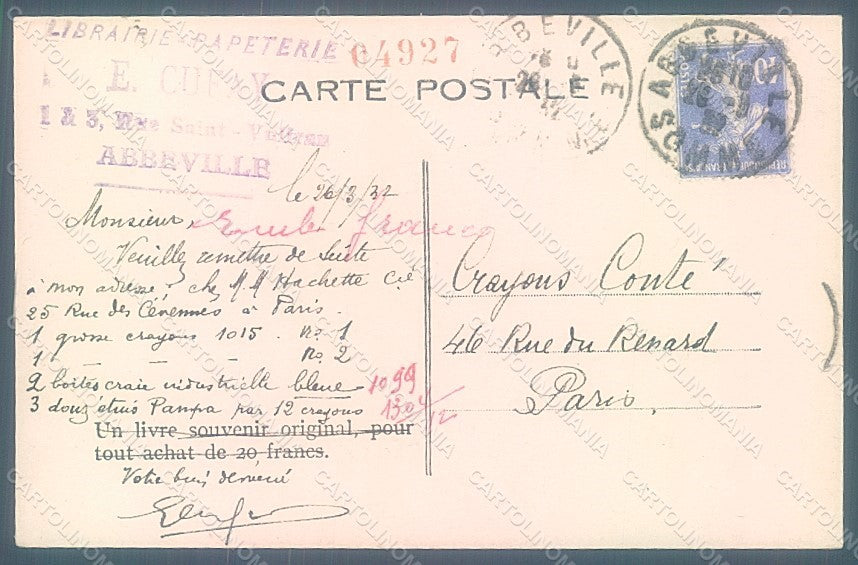 LIBRAIRIE-PAPETERIE
E.
1 & 3, Rue Saint-
ABBEVILLE
04927
CARTE POSTALE
ABBEVILLE
ABBEVILLE
SOMME
le 26/3/32
Monsieur,
franco
Veuillez remettre de suite
à mon adresse chez MM Hachette Cie
25 Rue des Cévennes à Paris.
1 grosse crayons 1015. No. 1
1 — — — No. 2
2 boîtes craie industrielle bleue 1099
3 douz étuis Pampa par 12 crayons 130 /12
Un livre souvenir original, pour
tout achat de 20 francs.
Votre bien dévoué
Crayons Conté
46 Rue du Renard
Paris.
CARTOLINOMANIA